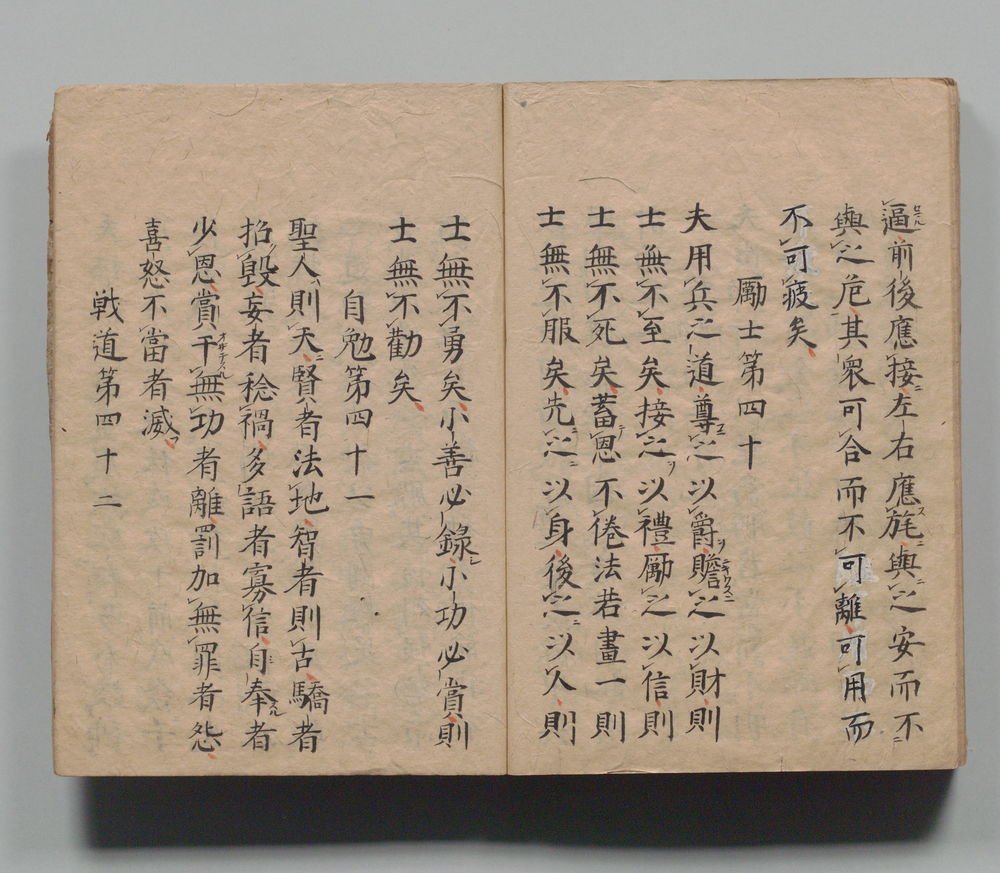 逼前後應接左右應旄與之安而不
與之危其衆可合而不可離可用而
不可疲矣
勵士第四十
夫用兵之道尊之以爵贍之以財則
士無不至矣接之以禮勵之以信則
士無不死矣蓄恩不倦法若畫一則
士無不服矣先之以身後之以人則
士無不勇矣小善必録小功必賞則
士無不勸矣
自勉第四十一
聖人則天賢者法地智者則古驕者
招毀妄者稔禍多語者寡信自奉者
少恩賞于無功者離罰加無罪者怨
喜怒不當者滅
戦道第四十二